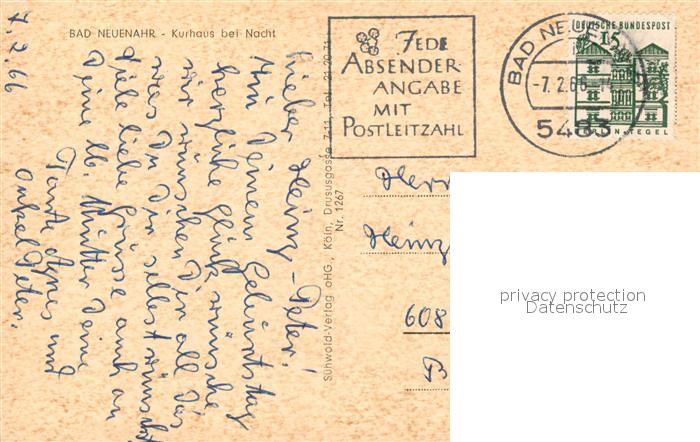 BAD NEUENAHR - Kurhaus bei Nacht
7.2.66
Lieber Heinz-Peter!
Zu Deinem Geburtstag
herzliche Glückwünsche
wir wünschen Dir all das
was Du Dir selbst wünschst
Viele liebe Grüsse auch an
Deine lb. Mutter Deine
Tante Agnes und
Onkel Peter.
Sühwold-Verlag oHG., Köln, Drususgasse 7-11, Tel. 21 20 71
Nr. 1267
JEDE
ABSENDER-
ANGABE
MIT
POSTLEITZAHL
BAD NEUENAHR
-7.2.66
5483
DEUTSCHE BUNDESPOST
15
BERLIN-TEGEL
Herr
Heinz
608
privacy protection
Datenschutz